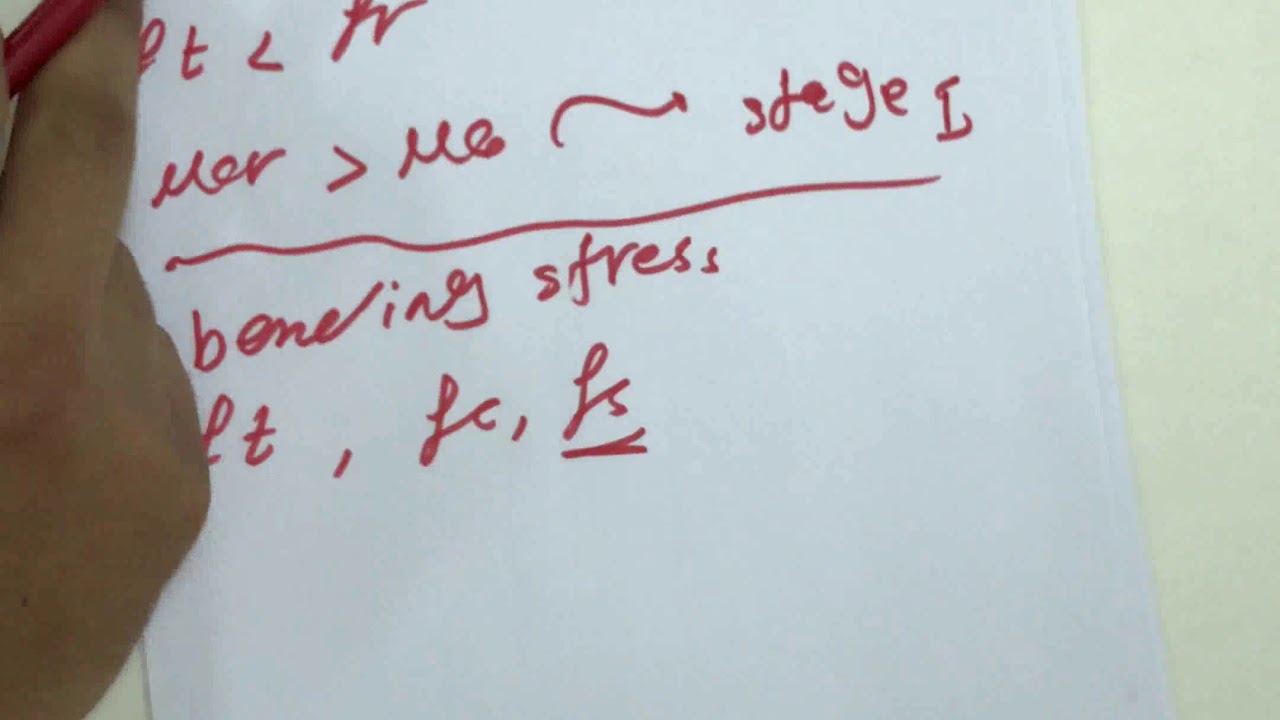 ft < fr
Mcr > Ma → stage I
bending stress
ft , fc, fs